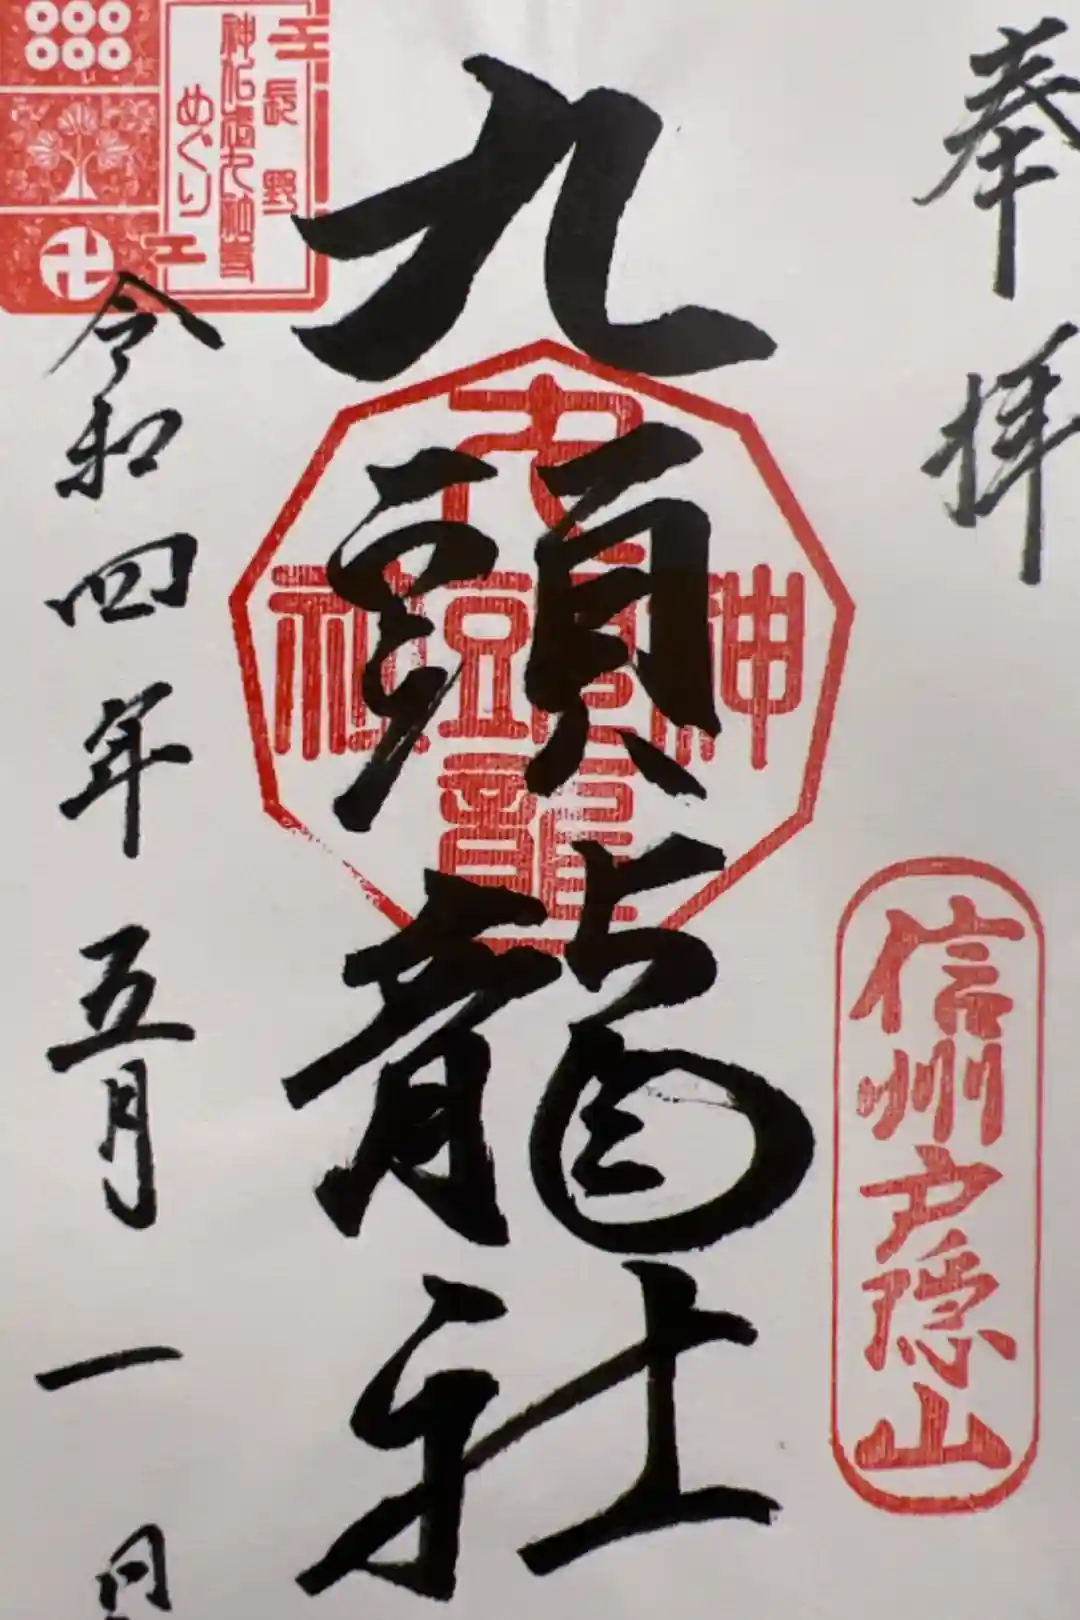 奉拝
信州戸隠山
九頭龍社
九頭龍神社
令和四年五月一日
長野
めぐり